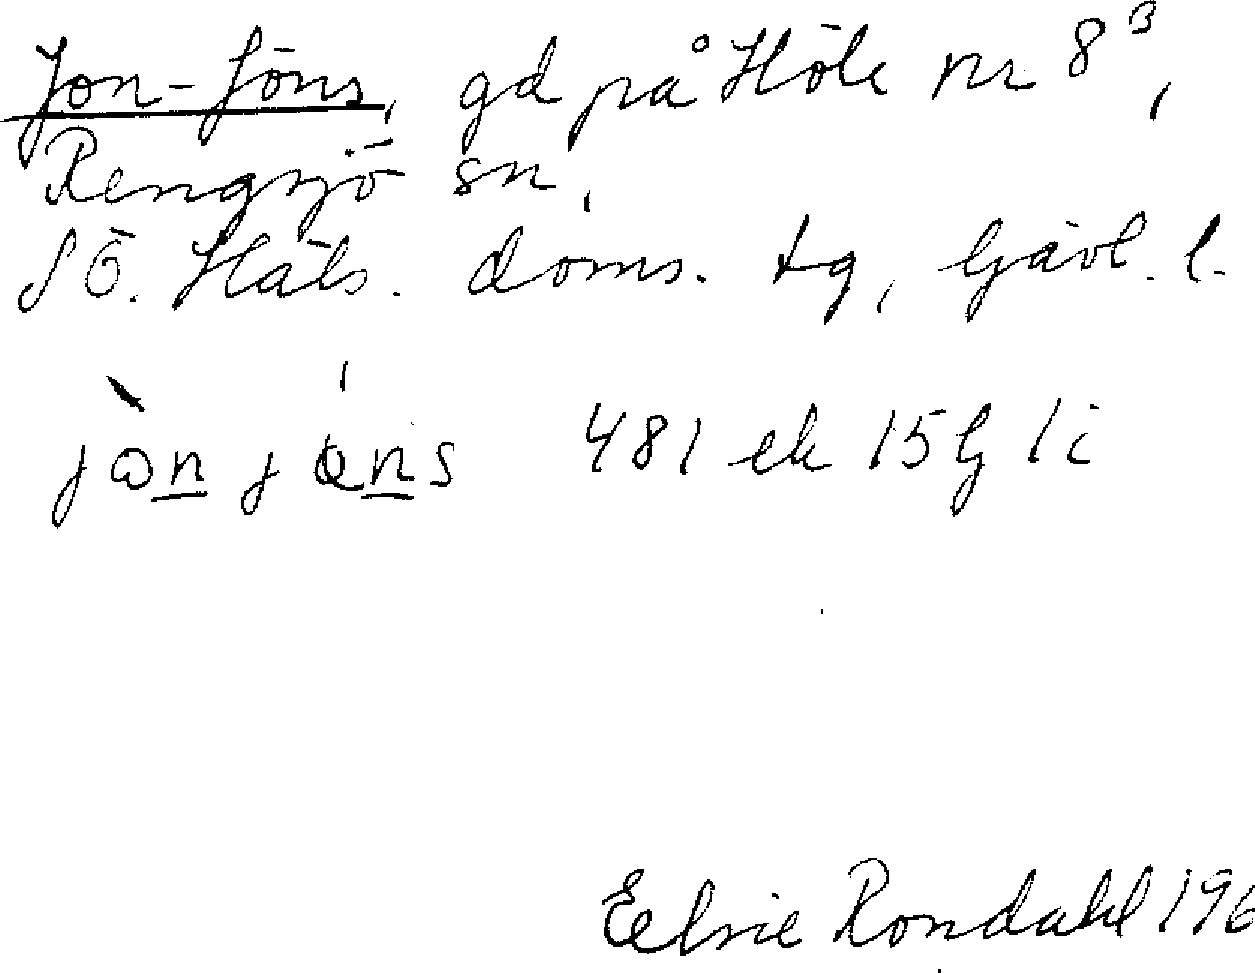 Jon-Jöns, gd på Höle nr 8³,
Rengsjö sn,
SÖ. Häls. doms. tg, Gävl. l.
481 ek 15g 1i
Elsie Rondahl 196